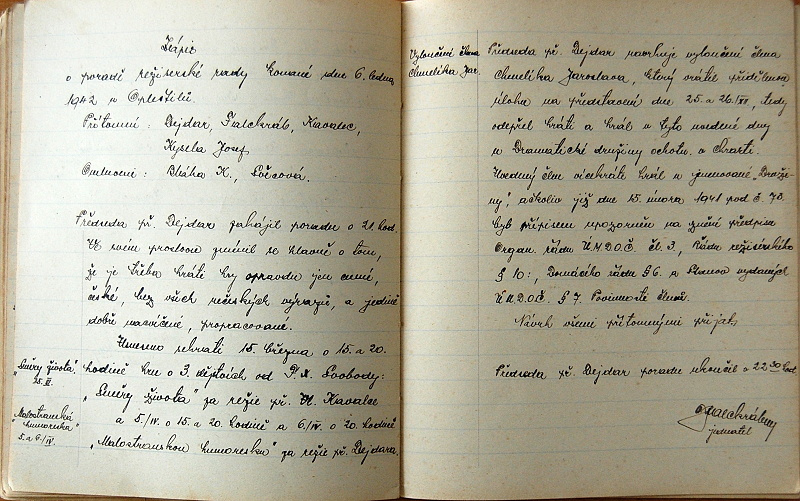 Zápis
o poradě režiserské rady konané dne 6. ledna
1942 u Chrletiků.
Přítomni: Dejdar, Falchráb, Kavalec,
Kysela Josef
Omluveni: Bláha K.,
Předseda př. Dejdar zahájil poradu o 21. hod.
V svém proslovu zmínil se hlavně o tom,
že je třeba hráti hry opravdu jen cenné,
české, bez všech německých výrazů, a jedině
dobře nacvičené, propracované.
Usneseno sehráti 15. března o 15. a 20.
"Směry života"
hodině hru o 3 dějstvích od F. X. Svobody:
"Směry života" za režie př. Kavalce
"Malostranská
humoreska"
5. a 6/IV.
a 5./IV. o 15. a 20. hodině a 6/IV. o 20. hodině
"Malostranskou humoresku" za režie př. Dejdara.
Vyloučení člena
Chmelíka Jar.
Předseda př. Dejdar navrhuje vyloučení člena
Chmelíka Jaroslava, který vrátil přidělenou
úlohu na představení dne 25. a 26./XII, tedy
odepřel hráti a hrál v tyto uvedené dny
u Dramatické družiny ochotn. v Chrasti.
Uvedený člen vícekráte hrál u jmenované "Druži-
ny", ačkoliv již dne 15. února 1941 pod č. 73.
byl přípisem upozorněn na znění předpisu
Organ. řádu Ú.M.D.O.Č. čl. 3, Řádu režisérského
§ 10:, Domácího řádu § 6. a Stanov vydaných
Ú.M.D.O.Č. § 7. Povinnosti členů.
Návrh všemi přítomnými přijat.
Předseda př. Dejdar poradu ukončil o 22 30 hod.
jednatel